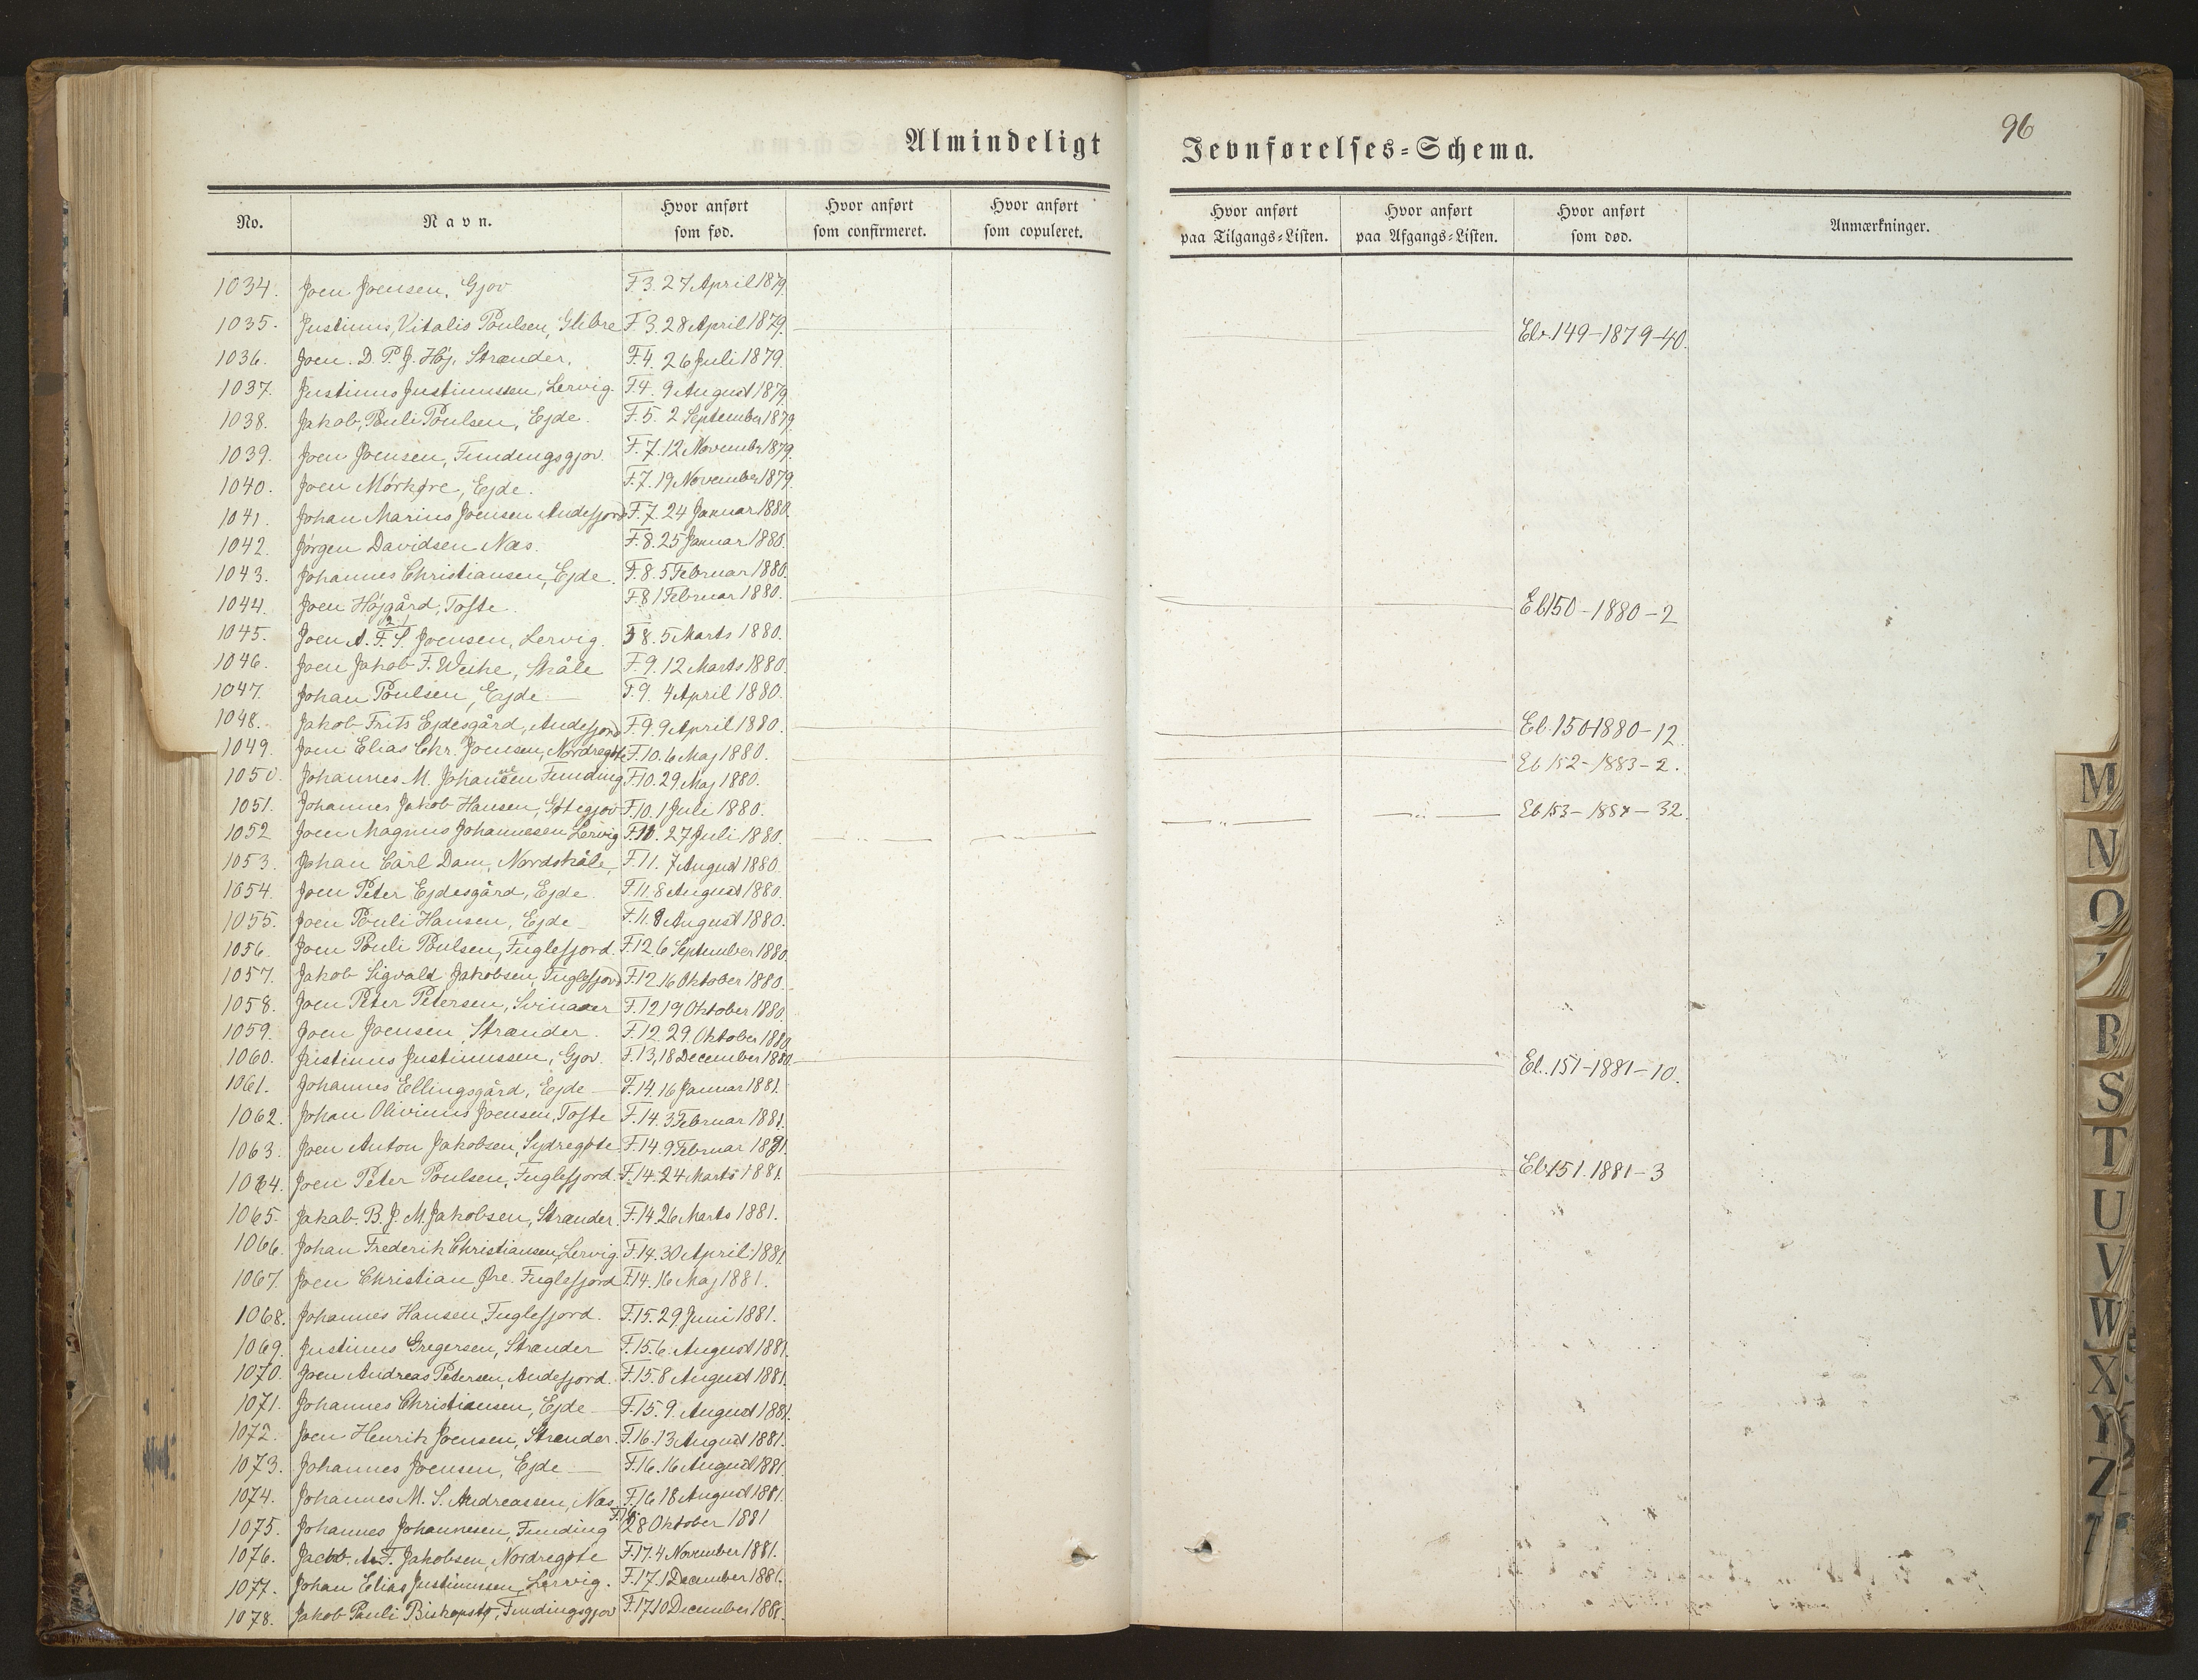 96
Almindeligt Jevnførelses-Schema.
No. Navn. Hvor anført som fød. Hvor anført som confirmeret. Hvor anført som copuleret. Hvor anført paa Tilgangs-Listen. Hvor anført paa Afgangs-Listen. Hvor anført som død. Anmærkninger.
1034. Joen Joensen, Gjov F. 3. 27 April 1879.
1035. Justinus, Vitalis Poulsen, Glibre F. 3. 28 April 1879. 149-1879-40.
1036. Joen. D. P. J. Høj, Strænder. F. 4. 26 Juli 1879.
1037. Justinus Justinussen, Lervig. F. 4. 9 August 1879.
1038. Jakob, Pauli Poulsen, Ejde. F. 5. 2 September 1879.
1039. Joen Joensen, Fundingsgjov. F. 7. 12 November 1879.
1040. Joen Mørkøre, Ejde. F. 7. 19 November 1879.
1041. Johan Marius Joensen Andefjord F. 7. 24 Januar 1880.
1042. Jørgen Davidsen Næs. F. 8. 25 Januar 1880.
1043. Johannes Christiansen, Ejde. F. 8. 5 Februar 1880.
1044. Joen Højgård, Tofte. F. 8 1 Februar 1880. Eb 150-1880-2
1045. Joen A. F. S. Joensen, Lervig. F 8. 5 Marts 1880.
1046. Joen Jakob F. Weihe, Skåle F. 9. 12 Marts 1880.
1047. Johan Poulsen, Ejde — F. 9. 4 April 1880.
1048. Jakob Frits Ejdesgård, Andefjord F. 9 9 April 1880. Eb. 150-1880-12.
1049. Joen Elias Chr. Joensen, Nordregøte F. 10. 6 Maj 1880. Eb 152-1883-2.
1050. Johannes M. Johansen Funding F. 10. 29 Maj 1880.
1051. Johannes Jakob Hansen, Gøtegjov F. 10. 1 Juli 1880. Eb 153-1884-32.
1052 Joen Magnus Johannesen Lervig F. 10. 27 Juli 1880.
1053. Johan Carl Dam, Nordskåle, F. 11. 7 August 1880.
1054. Joen Peter Ejdesgård, Ejde. F. 11. 8 August 1880.
1055. Joen Pauli Hansen, Ejde — F. 11. 8 August 1880.
1056. Joen Pauli Poulsen, Fuglefjord. F. 12 6 September 1880.
1057. Jakob Sigvald Jakobsen, Fuglefjord F. 12 16 Oktober 1880.
1058. Joen Peter Petersen, Svinaaer F. 12 19 Oktober 1880.
1059. Joen Joensen, Strænder. F. 12. 29. Oktober 1880.
1060. Justinus Justinussen, Gjov. F. 13, 18 December 1880. 151-1881-10.
1061. Johannes Ellingsgård, Ejde — F. 14. 16 Januar 1881.
1062. Johan Olivinus Joensen, Tofte F. 14. 3 Februar 1881.
1063. Joen Anton Jakobsen, Sydregøte F. 14. 9 Februar 1881.
1064. Joen Peter Poulsen, Fuglefjord. F. 14. 24 Marts 1881. Eb. 151. 1881-3
1065. Jakab. B. J. M. Jakobsen, Strænder. F. 14 26 Marts 1881.
1066. Johan Frederik Christiansen, Lervig. F. 14. 30 April 1881.
1067. Joen Christian Øre. Fuglefjord F. 14. 16 Maj 1881.
1068. Johannes Hansen, Fuglefjord. F. 15. 29 Juni 1881.
1069. Justinus Gregersen, Strænder F. 15. 6. August 1881.
1070. Joen Andreas Petersen, Andefjord. F. 15. 8 August 1881.
1071. Johannes Christiansen, Ejde — F. 15. 9. August 1881.
1072. Joen Henrik Joensen, Strænder. F. 16. 13 August 1881.
1073. Johannes Joensen, Ejde — F. 16. 16 August 1881.
1074. Johannes M. S. Andreassen, Næs F. 16 18 August 1881.
1075. Johannes Johannesen, Funding F. 16 28 Oktober 1881
1076. Jacob. A. F. Jakobsen, Nordregøte F. 17. 4 November 1881.
1077. Johan Elias Justinussen, Lervig. F. 17. 1 December 1881.
1078. Jakob Pauli Biskopstø, Fundingsgjov F. 17 10 December 1881.
M
N
O
R
S
T
U
V
W
X
Y
Z